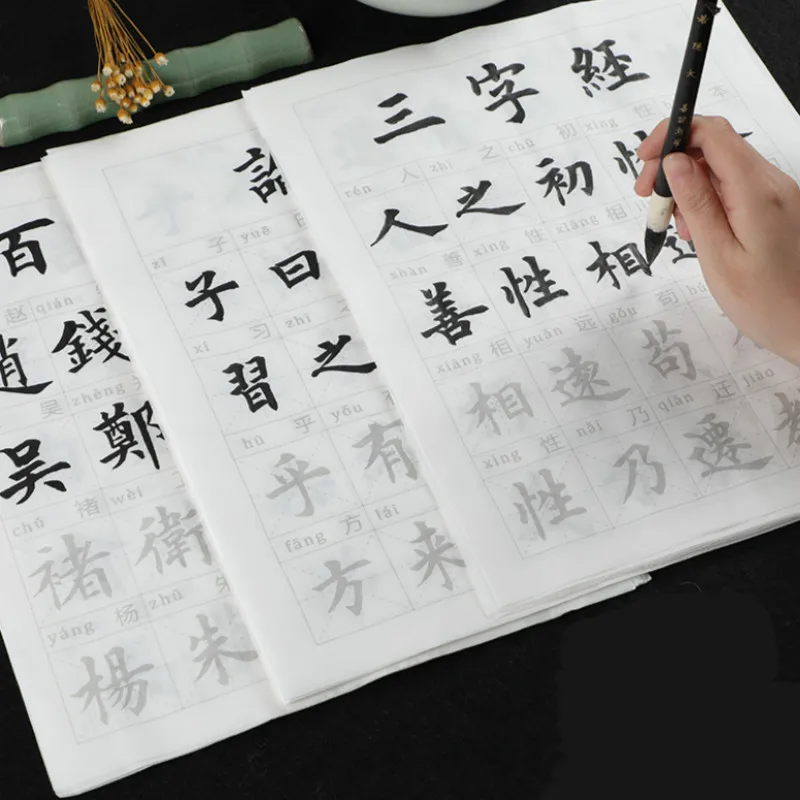 三字經
rén 人 zhī 之 chū 初 xìng 性 本
人之初性
shàn 善 xìng 性 xiāng 相
善性相近
xiāng 相 yuǎn 远 gǒu 苟
相遠苟
xìng 性 nǎi 乃 qiān 迁 jiào
性乃遷教
論
zǐ 子 yuē
子曰
xí 习 zhī
習之
hū 乎 yǒu
乎有
fāng 方 lái
方来
百
赵 qián
趙錢
吴 zhèng
吴鄭
chǔ 褚 wèi
褚衛
yáng 杨 zhū 朱
楊朱